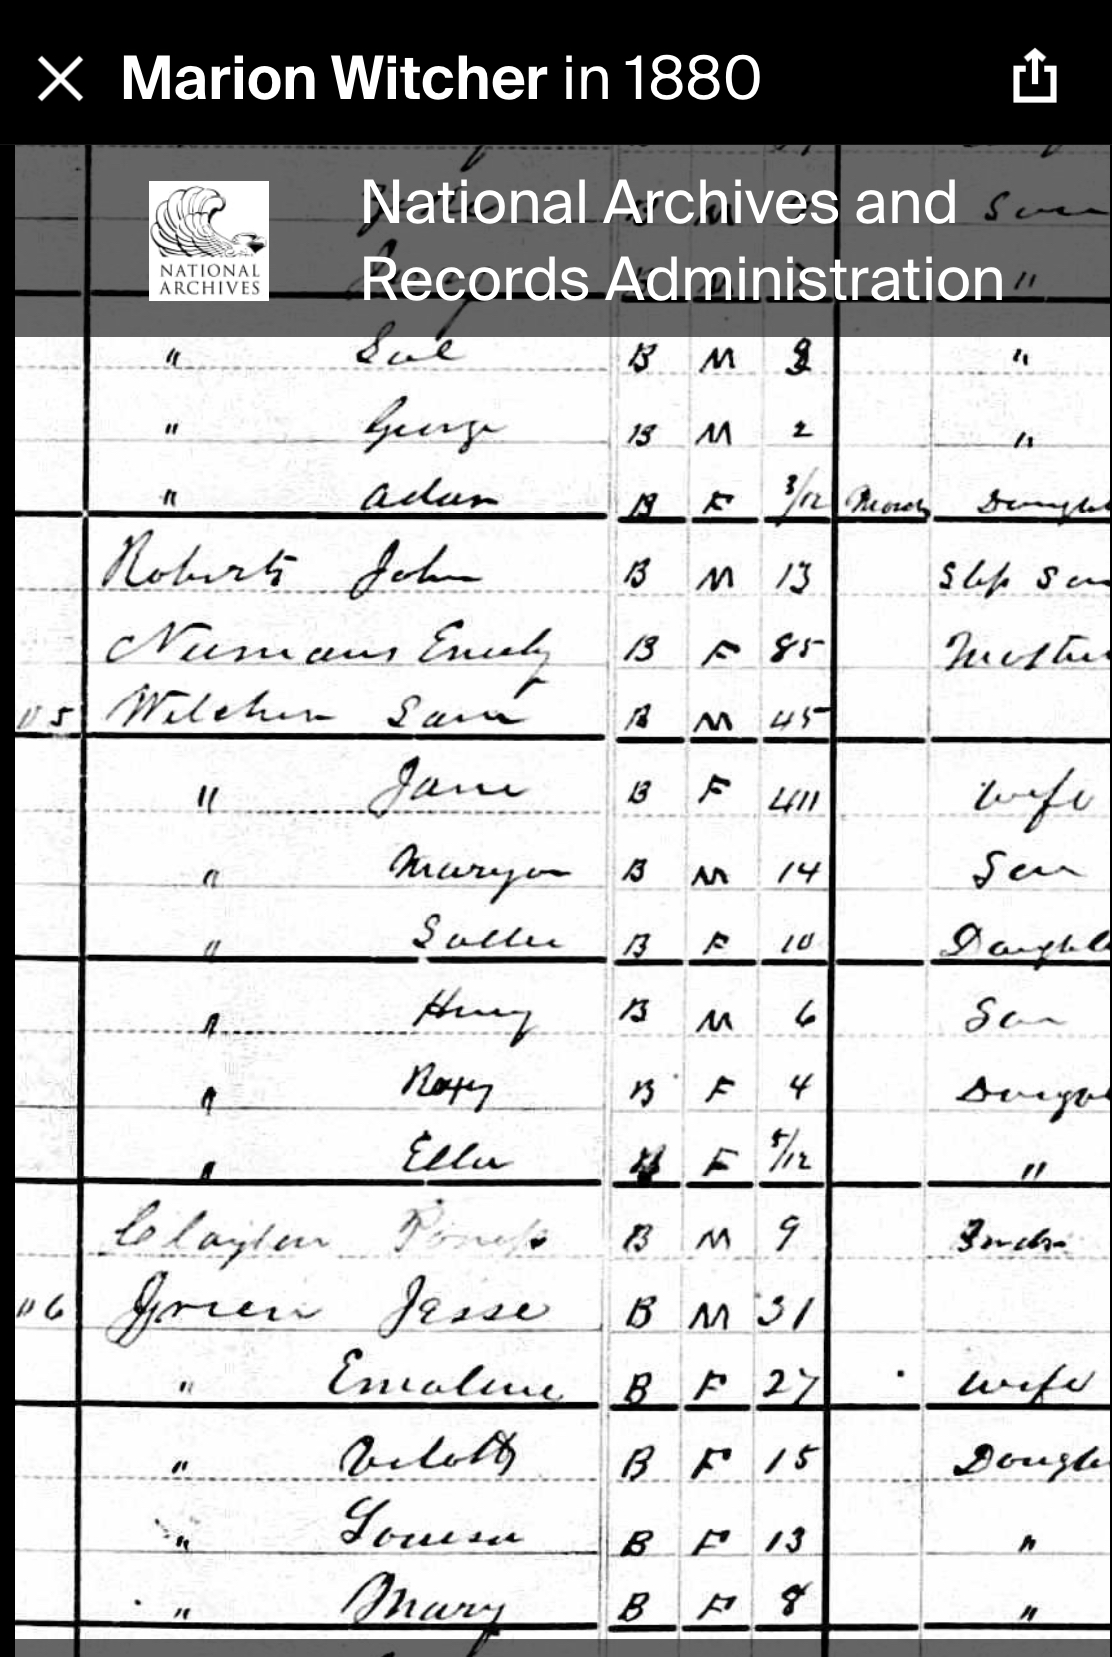 Marion Witcher in 1880
NATIONAL ARCHIVES
National Archives and
Records Administration
Son
"
" Sol B M "
" George B M 2 "
" Adam B F 3/12 Daught
Roberts John B M 13 Step Son
Emely B F 85 Mother
115 Witcher Sam B M 45
" Jane B F 40 wife
" Maryon B M 14 Son
" Sallie B F 10 Daughte
" Henry B M 6 Son
" Roxy B F 4 Daugh
" Ella F 5/12 "
Clayton B M 9
116 Green Jesse B M 31
" Emaline B F 27 wife
" B F 15 Daughte
" Louisa B F 13 "
" Mary B F 8 "